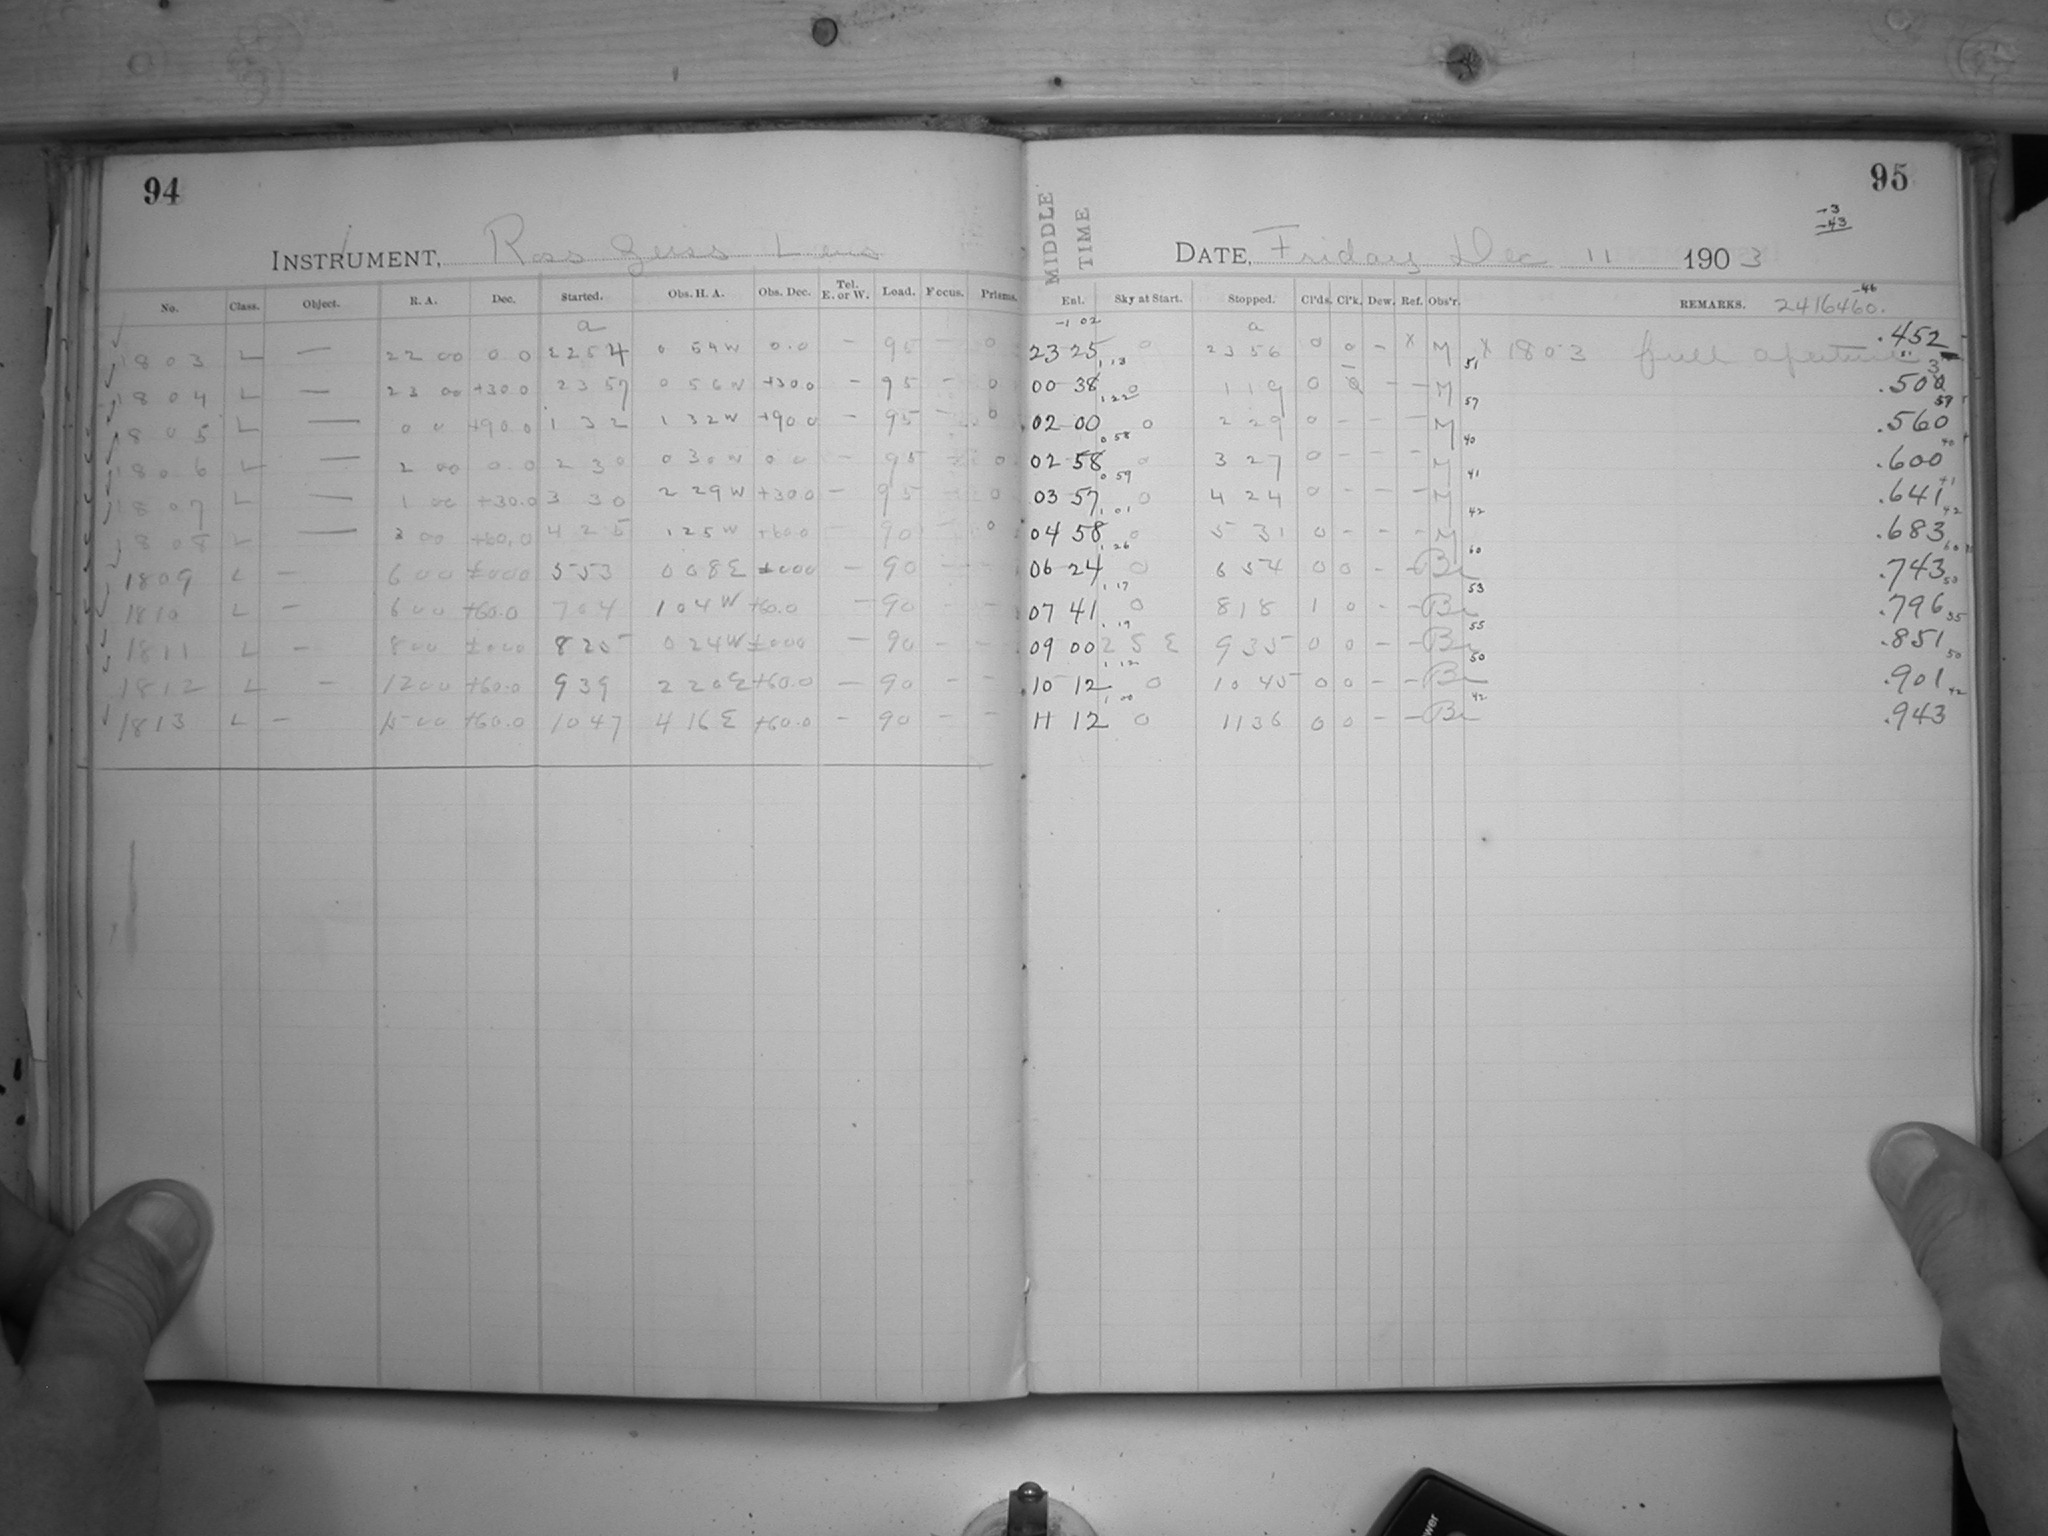 94
INSTRUMENT, Ross Zeiss Lens
No. Class. Object. R. A. Dec. Started. Obs. H. A. Obs. Dec. Tel. E. or W. Load. Focus. Prisms.
a
1803 L — 22 00 0.0 22 54 0 54 W 0.0 — 95 — 0
1804 L — 23 00 +30.0 23 57 0 56 W +30.0 — 95 — 0
1805 L — 0 0 +90.0 1 32 1 32 W +90.0 — 95 — 0
1806 L — 2 00 0.0 2 30 0 30 W 0.0 — 95 — 0
1807 L — 1 00 +30.0 3 30 2 29 W +30.0 — 95 — 0
1808 L — 3 00 +60.0 4 25 1 25 W +60.0 — 90 — 0
1809 L — 6 00 ±000 5 53 0 08 E ±000 — 90 — —
1810 L — 6 00 +60.0 7 04 1 04 W +60.0 — 90 — —
1811 L — 8 00 ±000 8 25 0 24 W ±000 — 90 — —
1812 L — 12 00 +60.0 9 39 2 20 E +60.0 — 90 — —
1813 L — 15 00 +60.0 10 47 4 16 E +60.0 — 90 — —
95
MIDDLE TIME
-3
-43
DATE, Friday Dec 11 1903
-46
Enl. Sky at Start. Stopped. Cl'ds. Cl'k. Dew. Ref. Obs'r. REMARKS. 2416460.
-1 02 a
23 25 0 23 56 0 0 — x M x 1803 full aperture .452
1.13 51
00 38 0 1 19 0 — — M .50
1.22 57
02 00 0 2 29 0 — — — M .560
0 58 40
02 58 0 3 27 0 — — — M .600
0 59 41
03 57 0 4 24 0 — — — M .641
1.01 42
04 58 0 5 31 0 — — — M .683
1.26 60
06 24 0 6 54 0 0 — — Br .743
1.17 53
07 41 0 8 18 1 0 — — Br .796
1.19 55
09 00 2 5 E 9 35 0 0 — — Br .851
1 12 50
10 12 0 10 45 0 0 — — Br .901
1 00 42
11 12 0 11 36 0 0 — — Br .943
wer